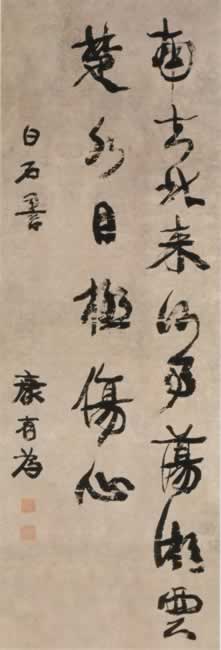 南去北来何事蕩湘雲
楚水目極傷心
白石
康有為